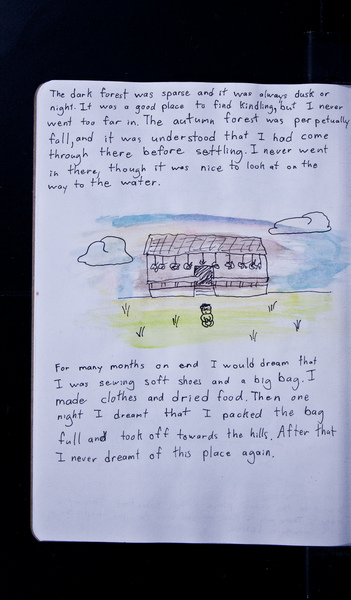 The dark forest was sparse and it was always dusk or
night. It was a good place to find kindling, but I never
went too far in. The autumn forest was perpetually
fall, and it was understood that I had come
through there before settling. I never went
in there, though it was nice to look at on the
way to the water.
For many months on end I would dream that
I was sewing soft shoes and a big bag. I
made clothes and dried food. Then one
night I dreamt that I packed the bag
full and took off towards the hills. After that
I never dreamt of this place again.